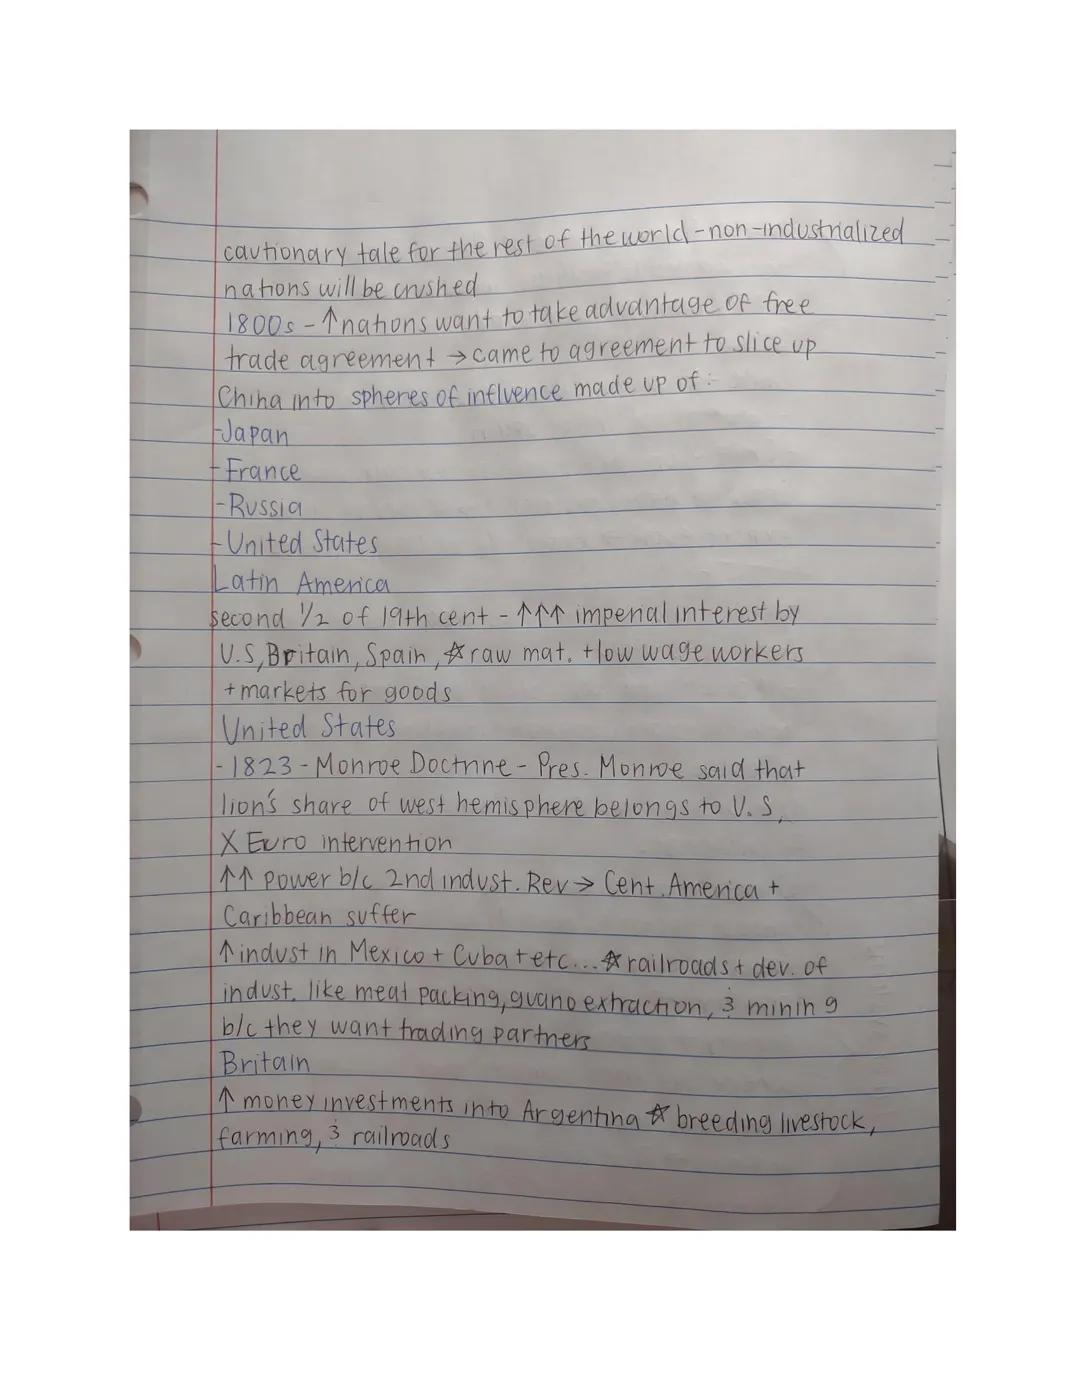 cautionary tale for the rest of the world - non-industrialized
nations will be crushed
1800s - ↑nations want to take advantage of free
trade agreement → came to agreement to slice up
China into spheres of influence made up of:
-Japan
-France
-Russia
-United States
Latin America
second 1/2 of 19th cent - ↑↑↑ imperial interest by
U.S, Britain, Spain, ☆ raw mat. + low wage workers
+ markets for goods
United States
-1823 - Monroe Doctrine - Pres. Monroe said that
lion's share of west hemisphere belongs to U.S,
X Euro intervention
↑↑ power b/c 2nd indust. Rev → Cent. America +
Caribbean suffer
↑ indust in Mexico + Cuba + etc... ☆ railroads + dev. of
indust. like meat packing, guano extraction, & mining
b/c they want trading partners
Britain
↑ money investments into Argentina ☆ breeding livestock,
farming, & railroads